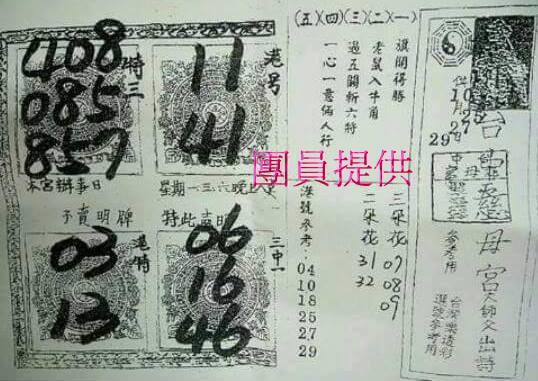 408
085
857
特三
11
41
港号
本宮辦事日
星期一三六晚上
不賣明牌
特此声明
03
13
港特
06
16
46
三中一
(五)(四)(三)(二)(一)
旗開得勝
老鼠入牛角
過五關斬六特
一心一意倆人行
團員提供
港號參考:
04
10
18
25
27
29
二朵花
31
32
三朵花
07
08
09
29
27
母宮
參考用
台灣樂透彩
選號參考用